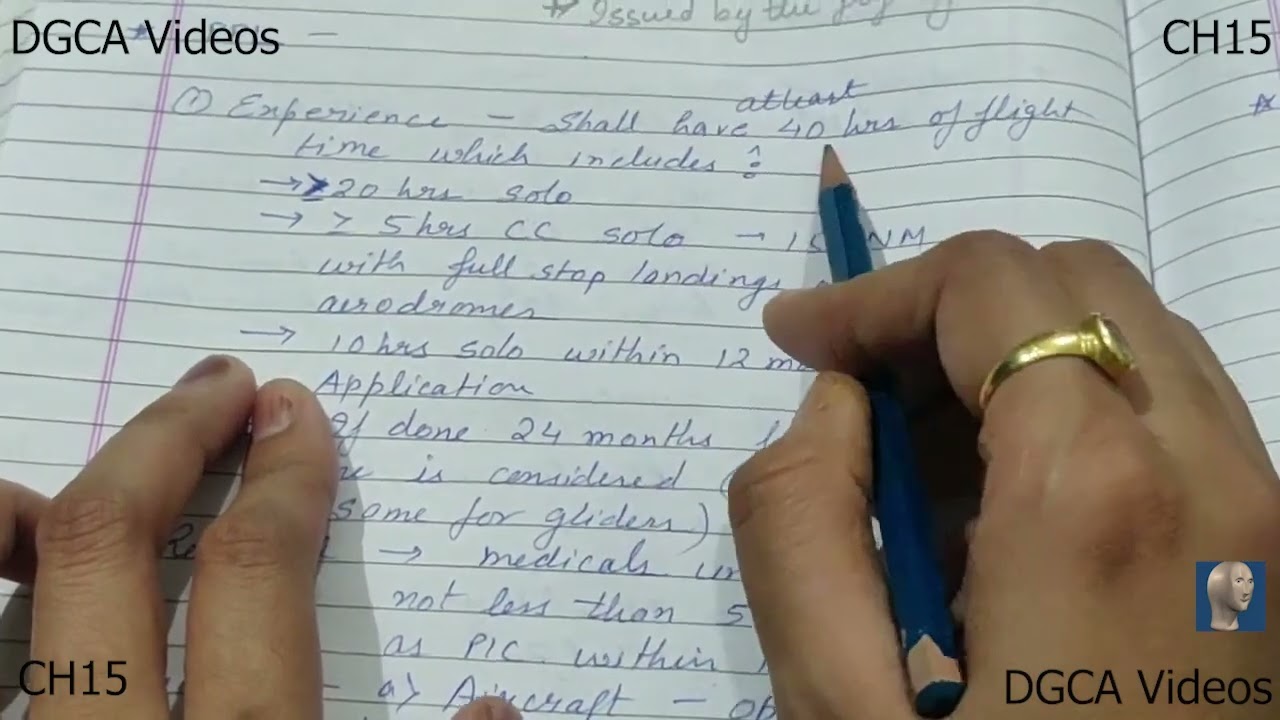 * Issued by the
DGCA Videos
CH15
① Experience - Shall have atleast 40 hrs of flight
time which includes :
→ ≥20 hrs solo
→ ≥ 5 hrs CC solo → NM
with full stop landings
aerodromes
→ 10 hrs solo within 12
Application
If done 24 months
is considered (
some for gliders)
→ medicals
not less than 5
as PIC within
- a) Aircraft -
CH15
DGCA Videos